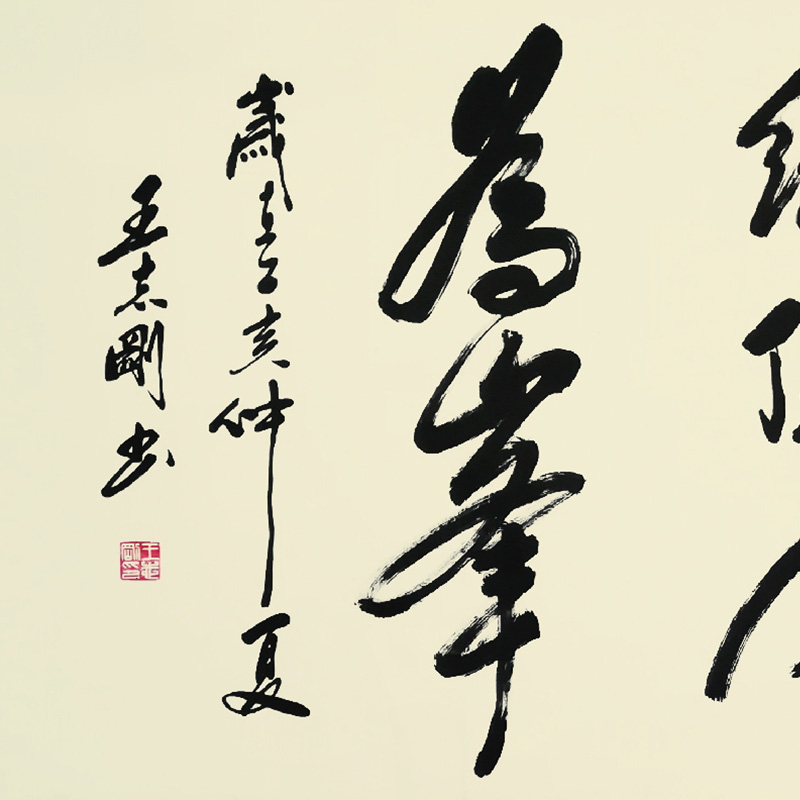 為峯
歲在己亥仲夏
王志剛书
王志剛印